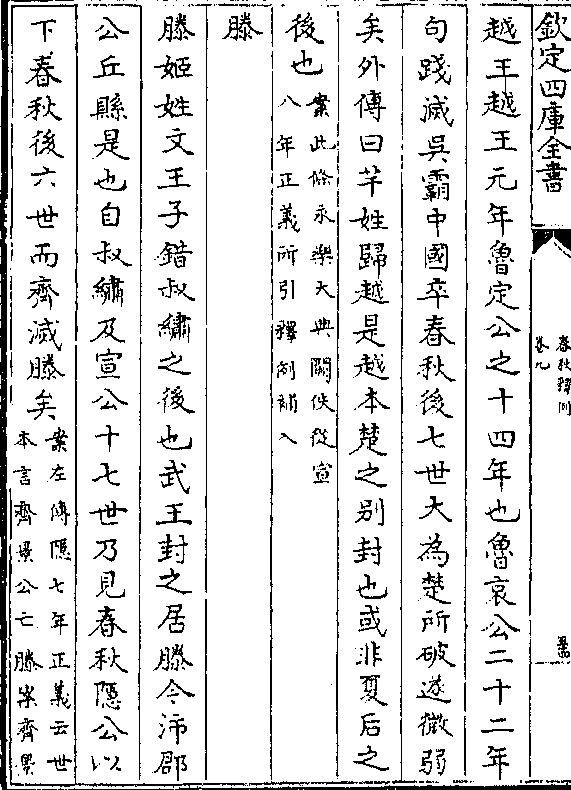 欽定四庫全書
春秋釋例
卷九
越王越王元年魯定公之十四年也魯哀公二十二年
句踐滅吳霸中國卒春秋後七世大為楚所破遂微弱
矣外傳曰芊姓歸越是越本楚之別封也或非夏后之
後也案此條永樂大典闕佚從宣
八年正義所引釋例補入
滕
滕姬姓文王子錯叔繡之後也武王封之居滕今沛郡
公丘縣是也自叔繡及宣公十七世乃見春秋隱公以
下春秋後六世而齊滅滕矣案左傳隱七年正義云世
本言齊景公亡滕案齊景